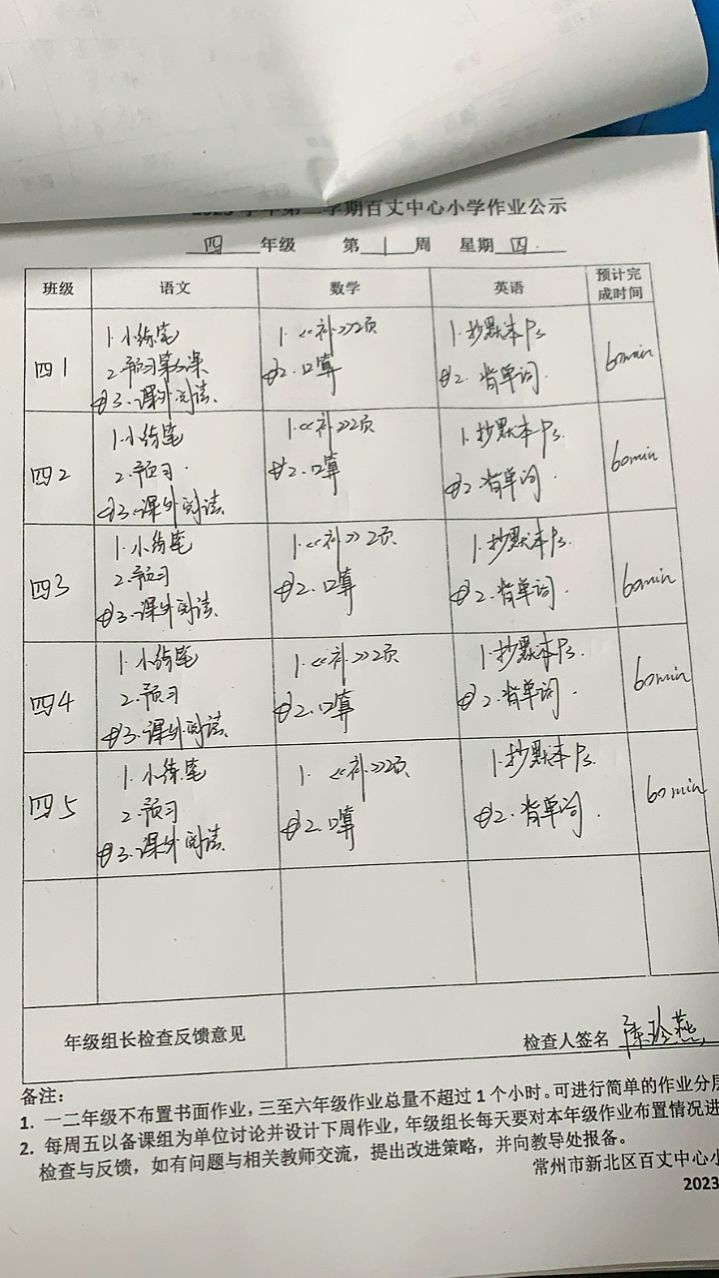 学期百丈中心小学作业公示
四 年级 第 1 周 星期 四
班级 语文 数学 英语 预计完成时间
四1
1.小练笔
2.预习第2课
3.课外阅读.
1.《补》2页
2.口算
1.抄默本P3
2.背单词.
60min
四2
1.小练笔
2.预习.
3.课外阅读.
1.《补》2页
2.口算
1.抄默本P3.
2.背单词.
60min
四3
1.小练笔
2.预习
3.课外阅读.
1.《补》2页
2.口算
1.抄默本P3.
2.背单词.
60min
四4
1.小练笔
2.预习
3.课外阅读.
1.《补》2页
2.口算
1.抄默本P3.
2.背单词.
60min
四5
1.小练笔
2.预习
3.课外阅读.
1.《补》2页
2.口算
1.抄默本P3.
2.背单词.
60min
年级组长检查反馈意见
检查人签名
备注:
1. 一二年级不布置书面作业,三至六年级作业总量不超过1个小时。可进行简单的作业分层
2. 每周五以备课组为单位讨论并设计下周作业,年级组长每天要对本年级作业布置情况进
检查与反馈,如有问题与相关教师交流,提出改进策略,并向教导处报备。
常州市新北区百丈中心小
2023